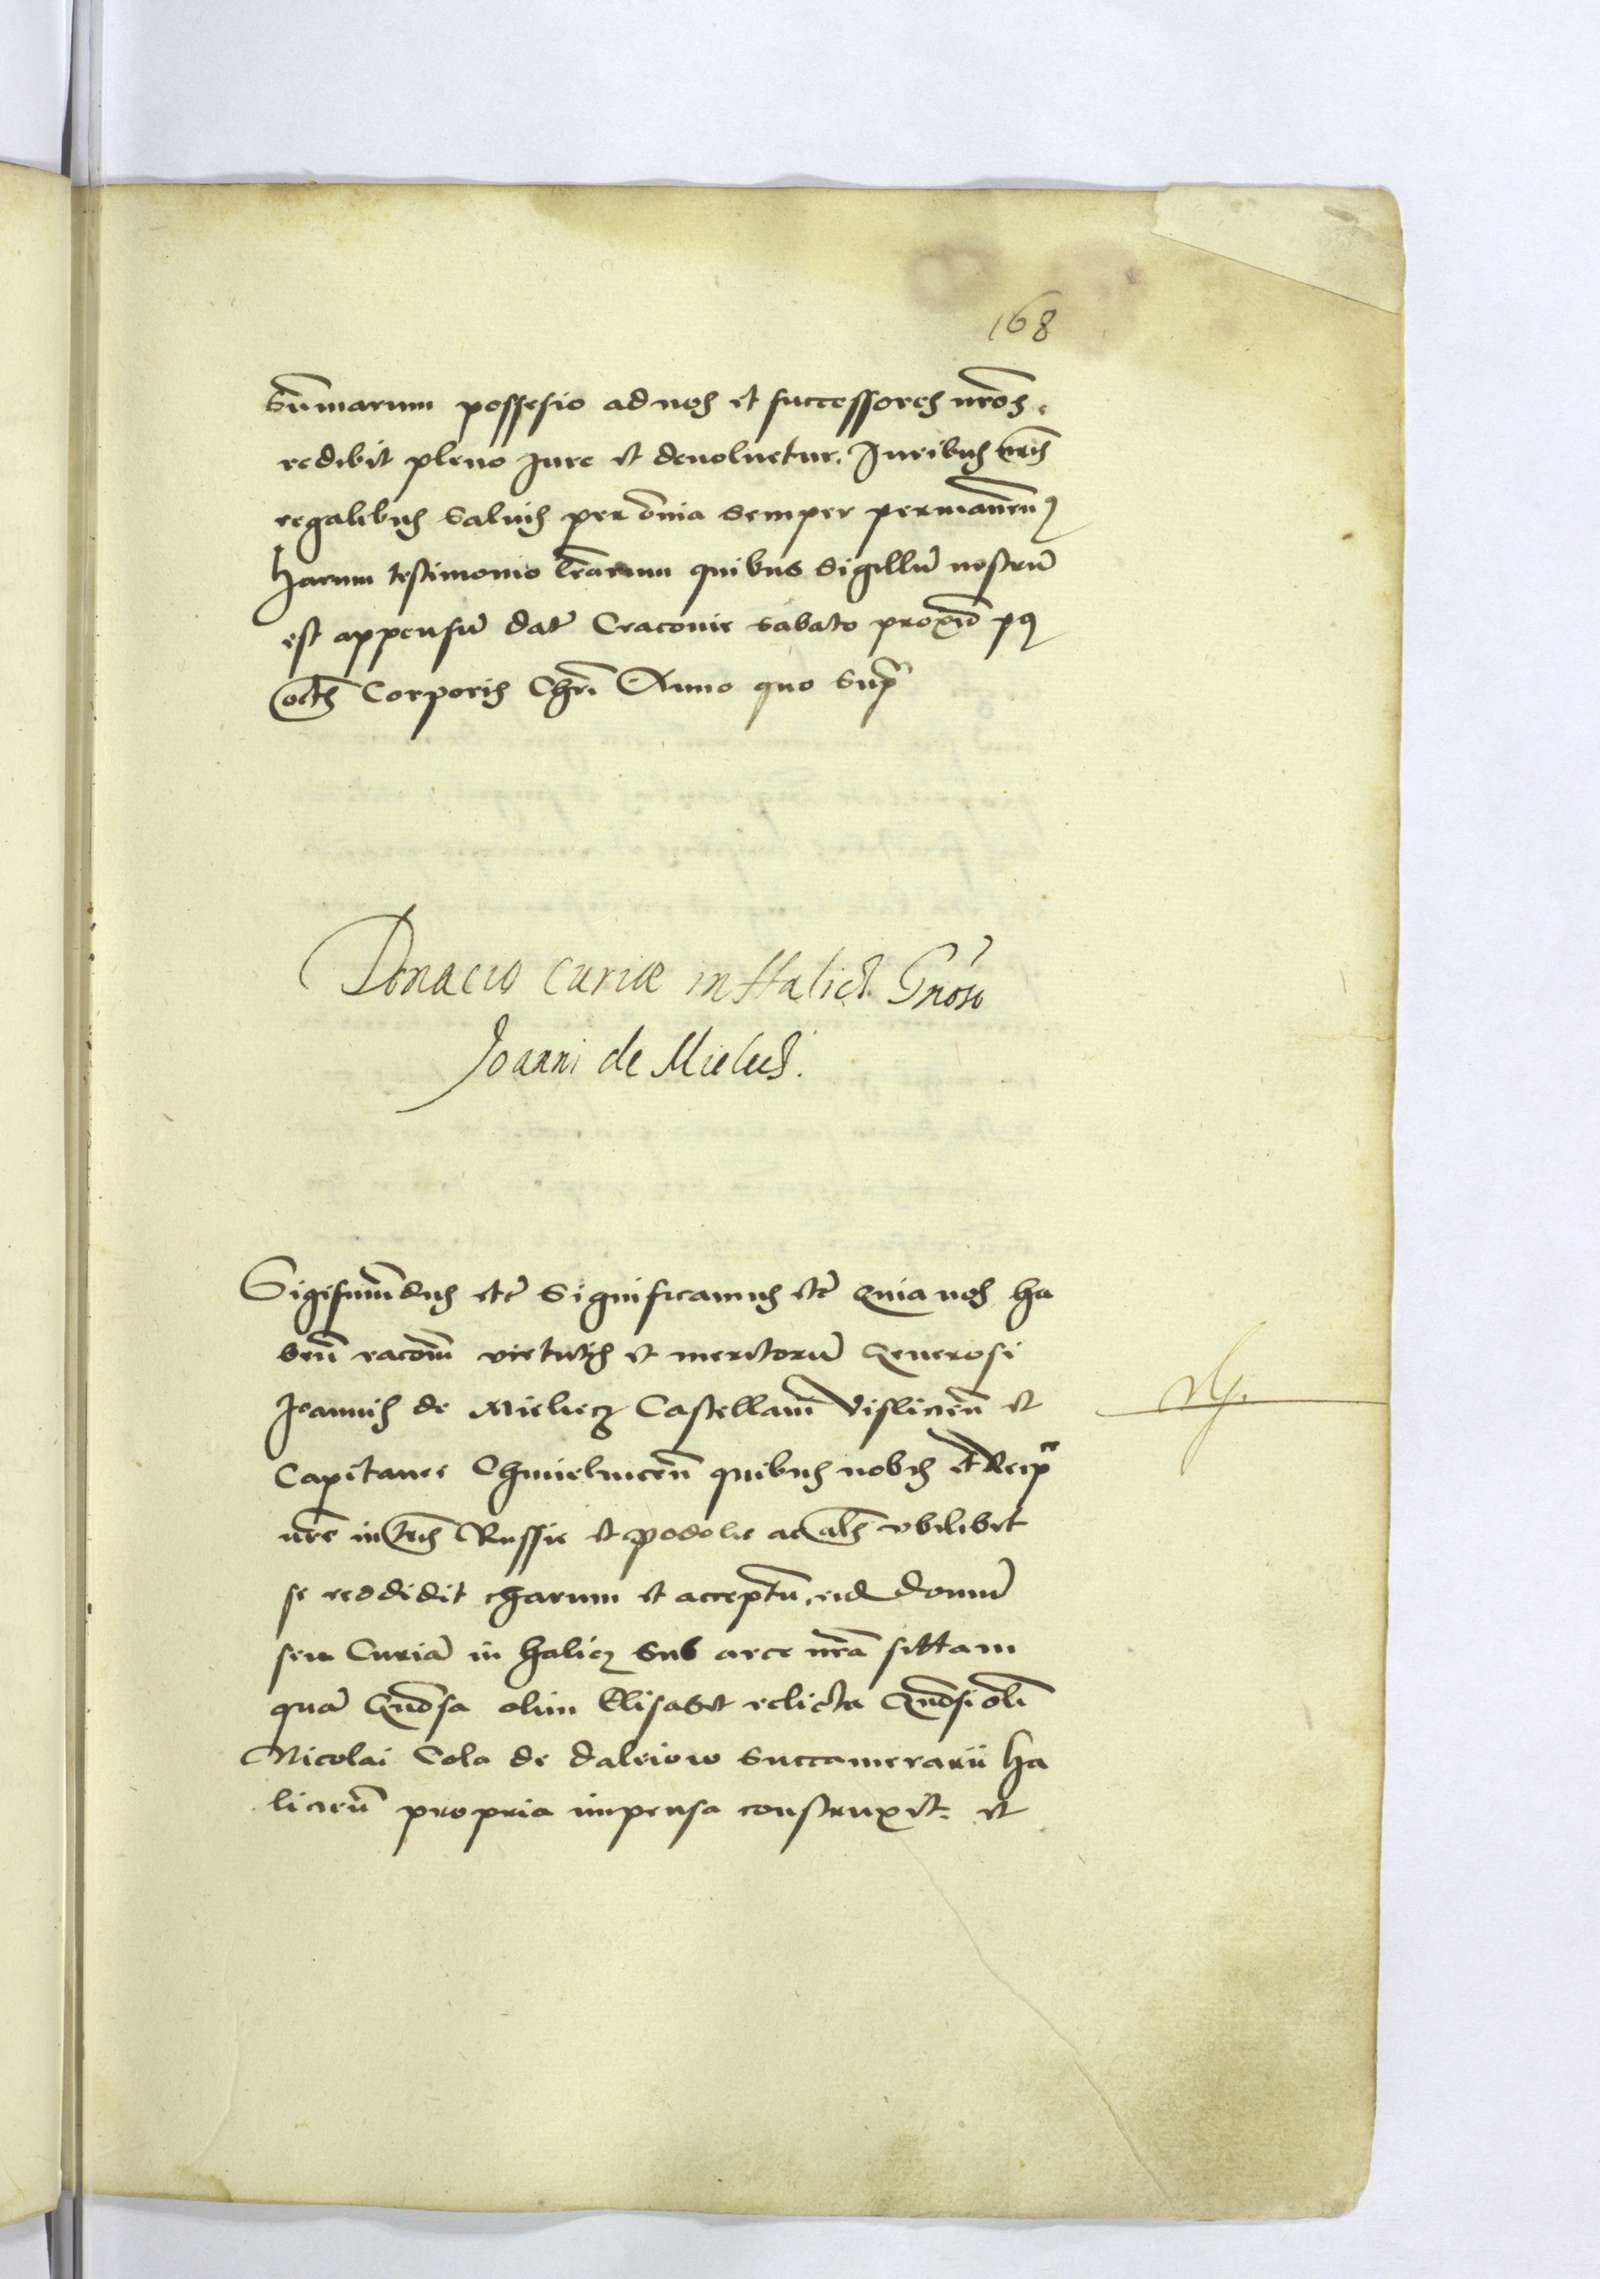 168
Sūmarum possesio ad nos et successores nrōs
redibit pleno Jure et devoluetur, Juribus nrīs
regalibus Saluis per ōnia semper permanēn
harum testimonio lrārum quibus Sigillū nostrū
est appensū dat Cracovie Sabato proxīo pꝯ
octs Corporis Chrī Anno quo Supra
Donacio curiæ in Halicz Gnōso
Joanni de Mielecz.
Sigismūdus etc̄ Significamus etc̄ Quia nos ha
bēn racōem virtutis et meritorū Generosi
Joannis de Mielecz Castellanī Vislicieñ et
Capitanei Chmielniceñ quibus nobis et Reip
nrē in trīs Russie et podolie ac als ubilibet
se reddidit charum et acceptū, eid Domū
seu Curiā in halicz Sub arce nrā sittam
quā Gnōsa olim Elisabet relicta Gnōsi olī
Nicolai Cola de daleiow Succamerarii ha
licieñ propria impensa construxit. et